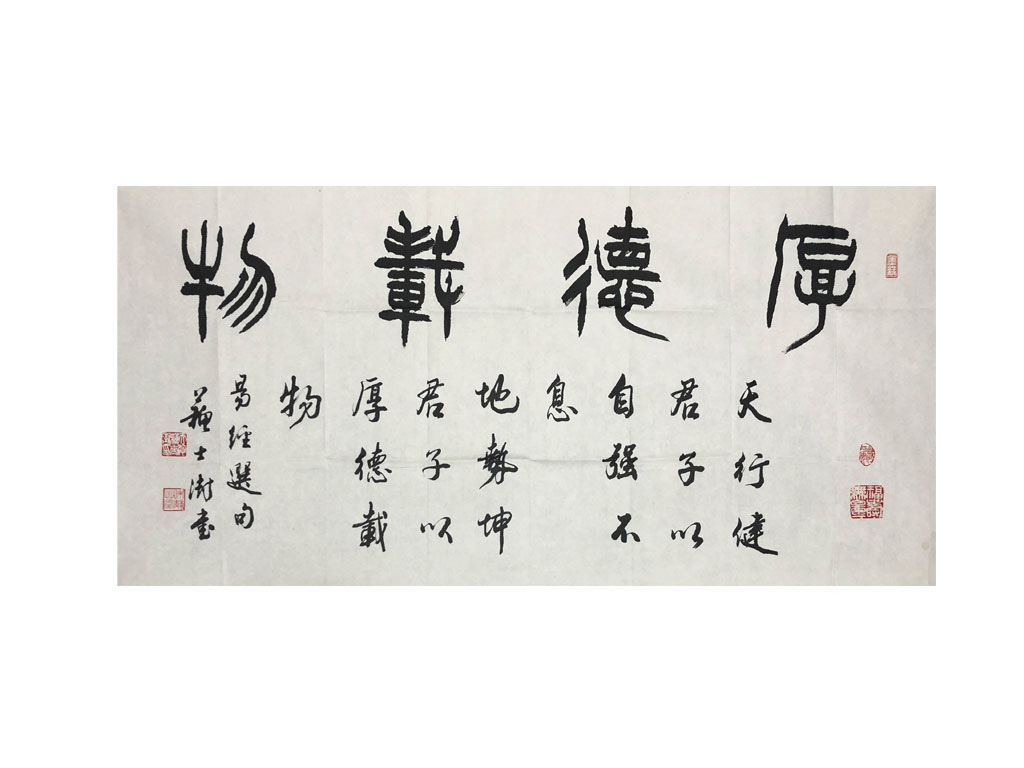 厚德載物
天行健
君子以
自强不
息
地勢坤
君子以
厚德載
物
易經選句
蘇士澍书